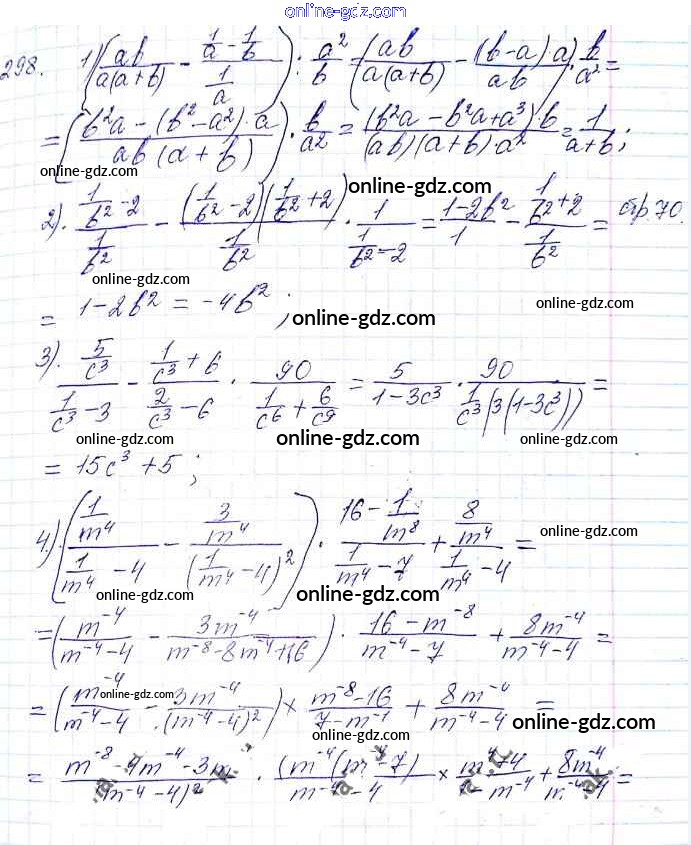 online-gdz.com
298. 1) (ab/(a(a+b)) - (1/a - 1/b)/(1/a)) : a²/b = (ab/(a(a+b)) - (b-a)·a/(ab)) · b/a² =
= (b²a - (b²-a²)·a)/(ab(a+b)) · b/a² = (b²a - b²a + a³)·b/((ab)(a+b)·a²) = 1/(a+b);
online-gdz.com online-gdz.com
2). (1/b² - 2)/(1/b²) - (1/b² - 2)(1/b² + 2)/(1/b²) · 1/(1/b² - 2) = (1-2b²)/1 - (1/b² + 2)/(1/b²) = стр. 70.
online-gdz.com online-gdz.com
= 1-2b² = -4b²; online-gdz.com
3). (5/c³)/(1/c³ - 3) - (1/c³ + 6)/(2/c³ - 6) · 90/(1/c⁶ + 6/c⁹) = 5/(1-3c³) · 90/(1/c³(3(1-3c³))) =
online-gdz.com online-gdz.com
= 15c³ + 5; online-gdz.com
4.) ((1/m⁴)/(1/m⁴ - 4) - (3/m⁴)/(1/m⁴ - 4)²) · (16 - 1/m⁸)/(1/m⁴ - 7) + (8/m⁴)/(1/m⁴ - 4) =
online-gdz.com online-gdz.com online-gdz.com
= (m⁻⁴/(m⁻⁴-4) - 3m⁻⁴/(m⁻⁸-8m⁻⁴+16)) · (16-m⁻⁸)/(m⁻⁴-7) + 8m⁻⁴/(m⁻⁴-4) =
= (m⁻⁴/(m⁻⁴-4) - 3m⁻⁴/(m⁻⁴-4)²) × (m⁻⁸-16)/(7-m⁻¹) + 8m⁻⁴/(m⁻⁴-4) =
online-gdz.com online-gdz.com
= (m⁻⁸-4m⁻⁴-3m)/(m⁻⁴-4)² · (m⁻⁴(m⁻⁴-7))/(m⁻⁴-4) × + 8m⁻⁴/(m⁻⁴-4) =